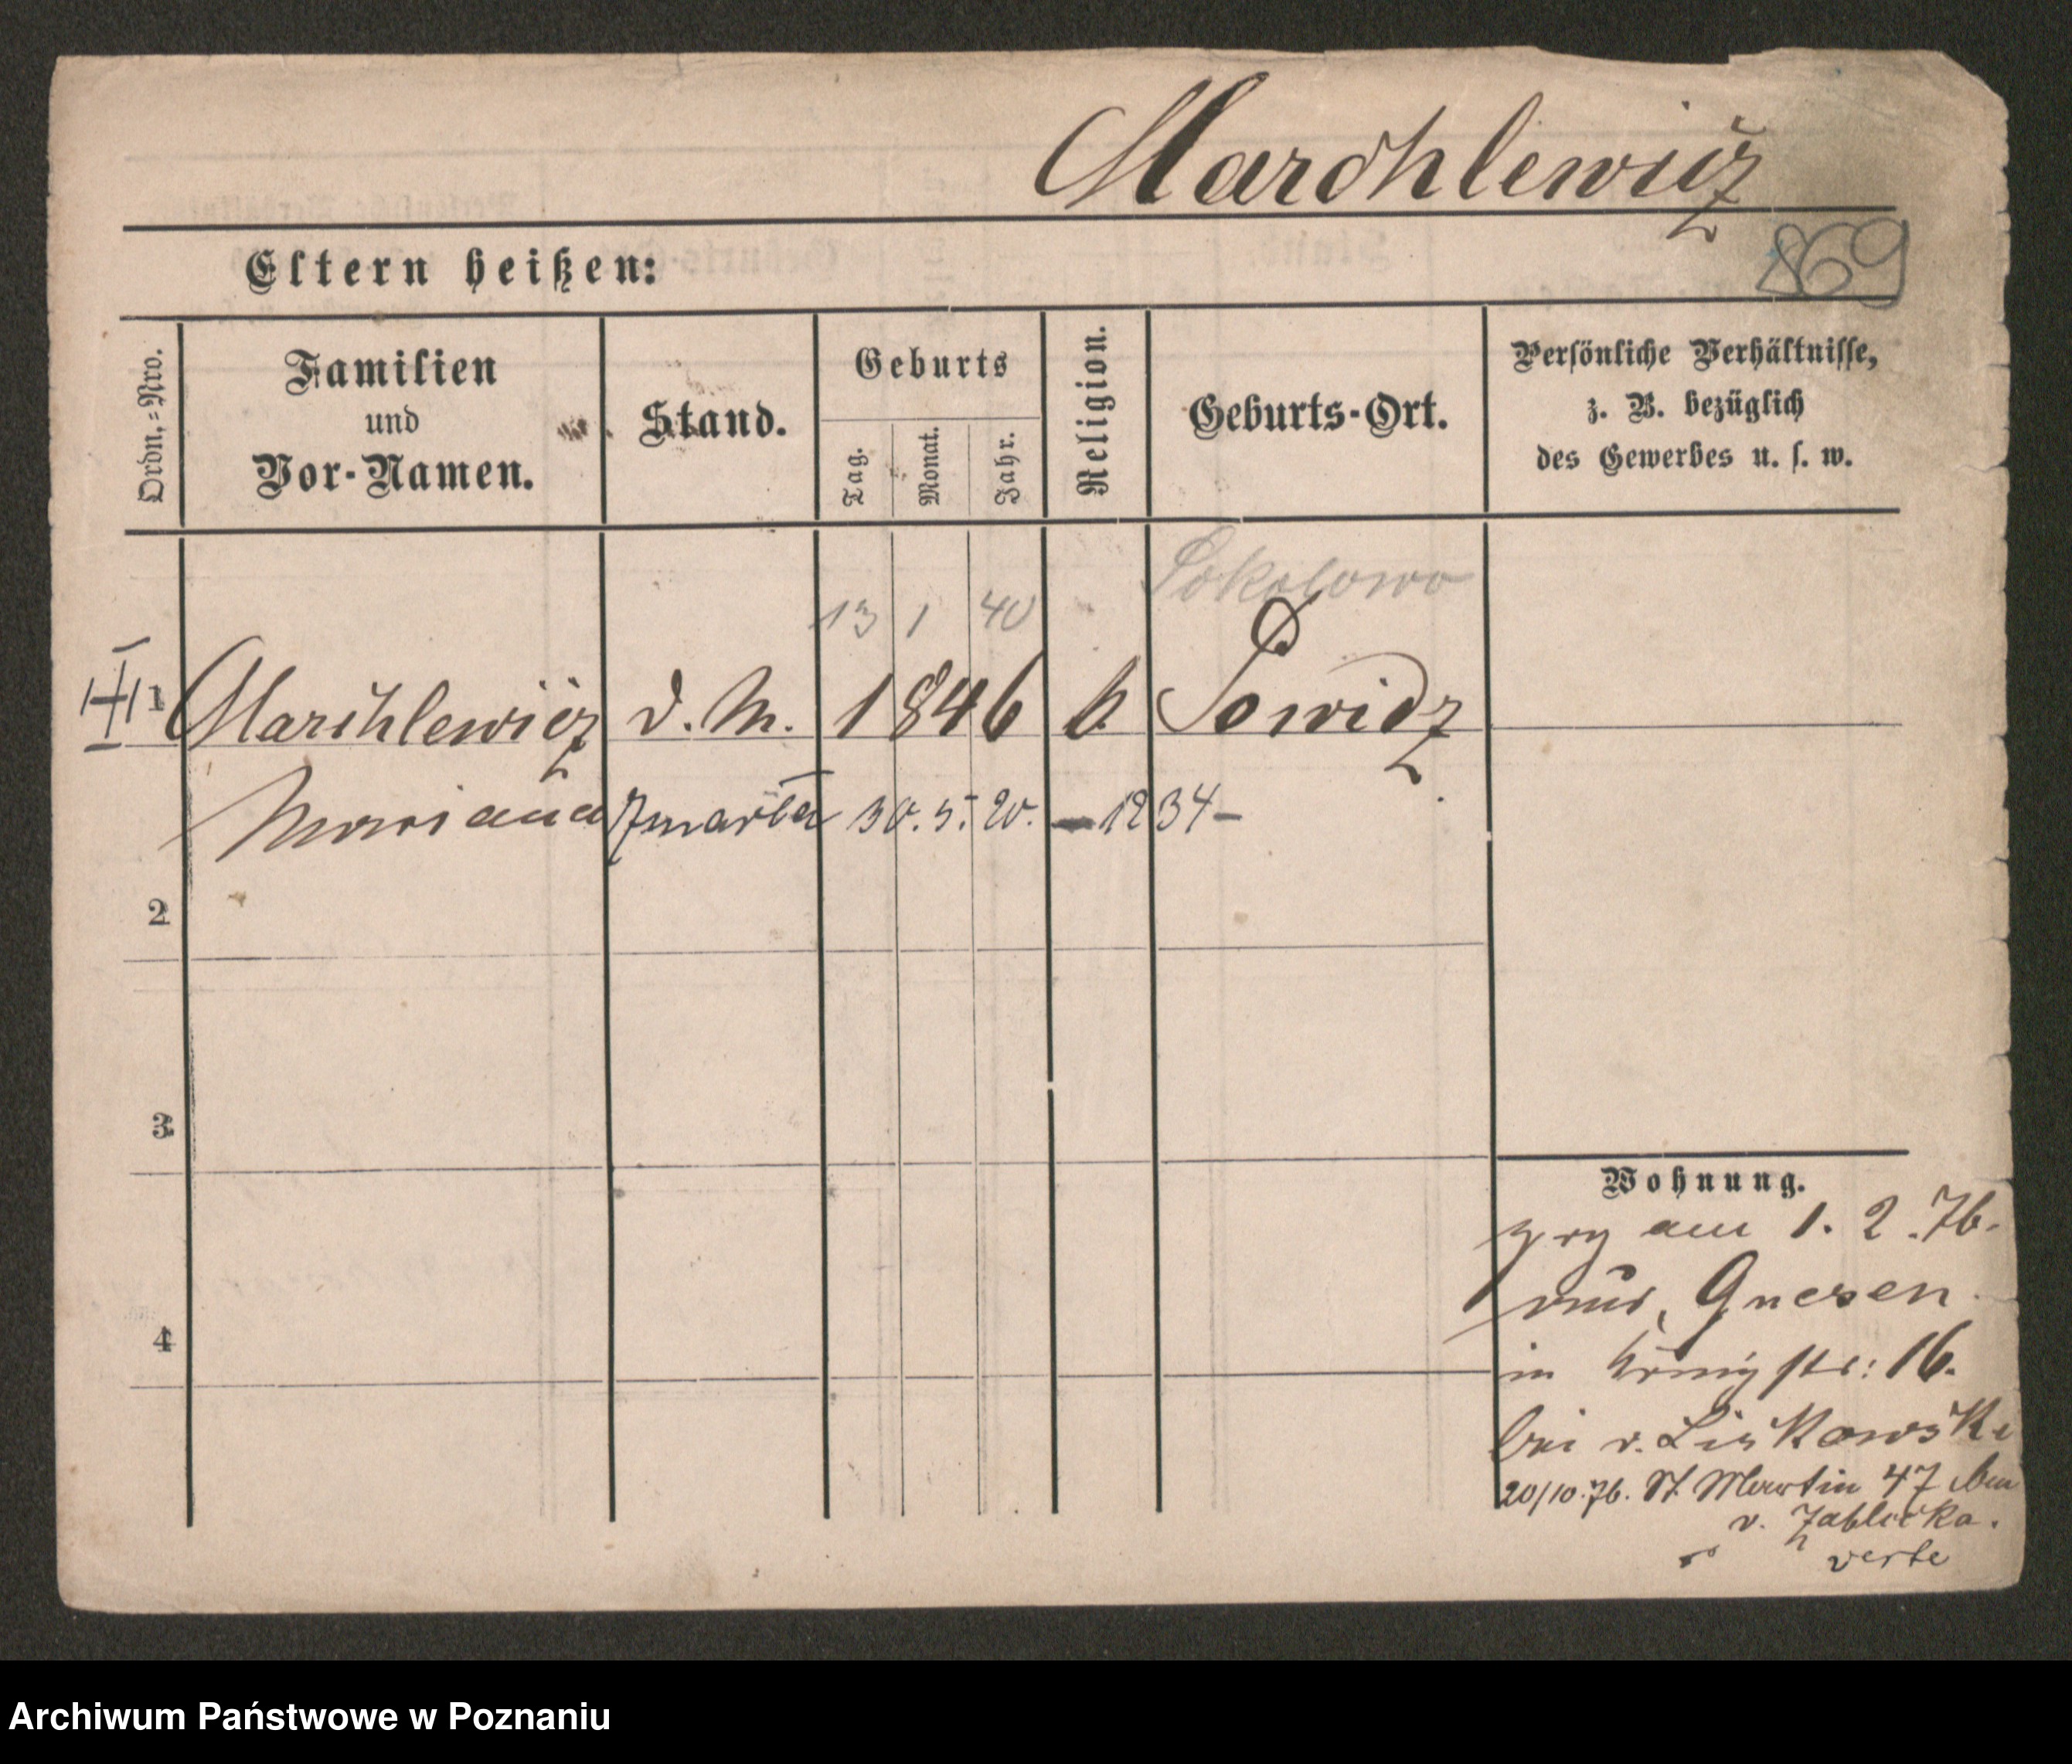 Marchlewicz
869
Eltern heißen:
Ordn.=Nro.
Familien
und
Vor-Namen.
Stand.
Geburts
Tag.
Monat.
Jahr.
Religion.
Geburts-Ort.
Persönliche Verhältnisse,
z. B. bezüglich
des Gewerbes u. s. w.
Sokolowo
13 1 40
1 Marchlewicz d. M. 1846 k Powidz
Marianna Zmarła 30. 5. 20. — 1234 —
2
3
4
Wohnung.
zog am 1. 2. 76.
aus Gnesen
in Königstr: 16.
bei v. Liskowski
20/10. 76. St. Martin 47 bei
v. Zablocka.
verte